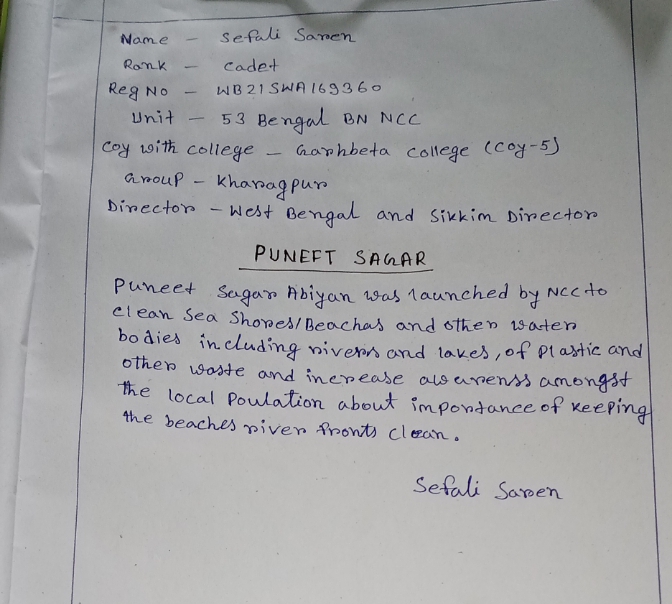 Name - Sefali Saren
Rank - cadet
Reg No - WB21SWA169360
Unit - 53 Bengal BN NCC
Coy with college - Garhbeta college (Coy-5)
Group - Kharagpur
Director - West Bengal and Sikkim Director
PUNEET SAGAR
Puneet Sagar Abiyan was launched by NCC to
clean Sea Shores/Beachas and other water
bodies including rivers and lakes, of Plastic and
other waste and increase awarenss amongst
the local Poulation about importance of keeping
the beaches river fronts clean.
Sefali Saren